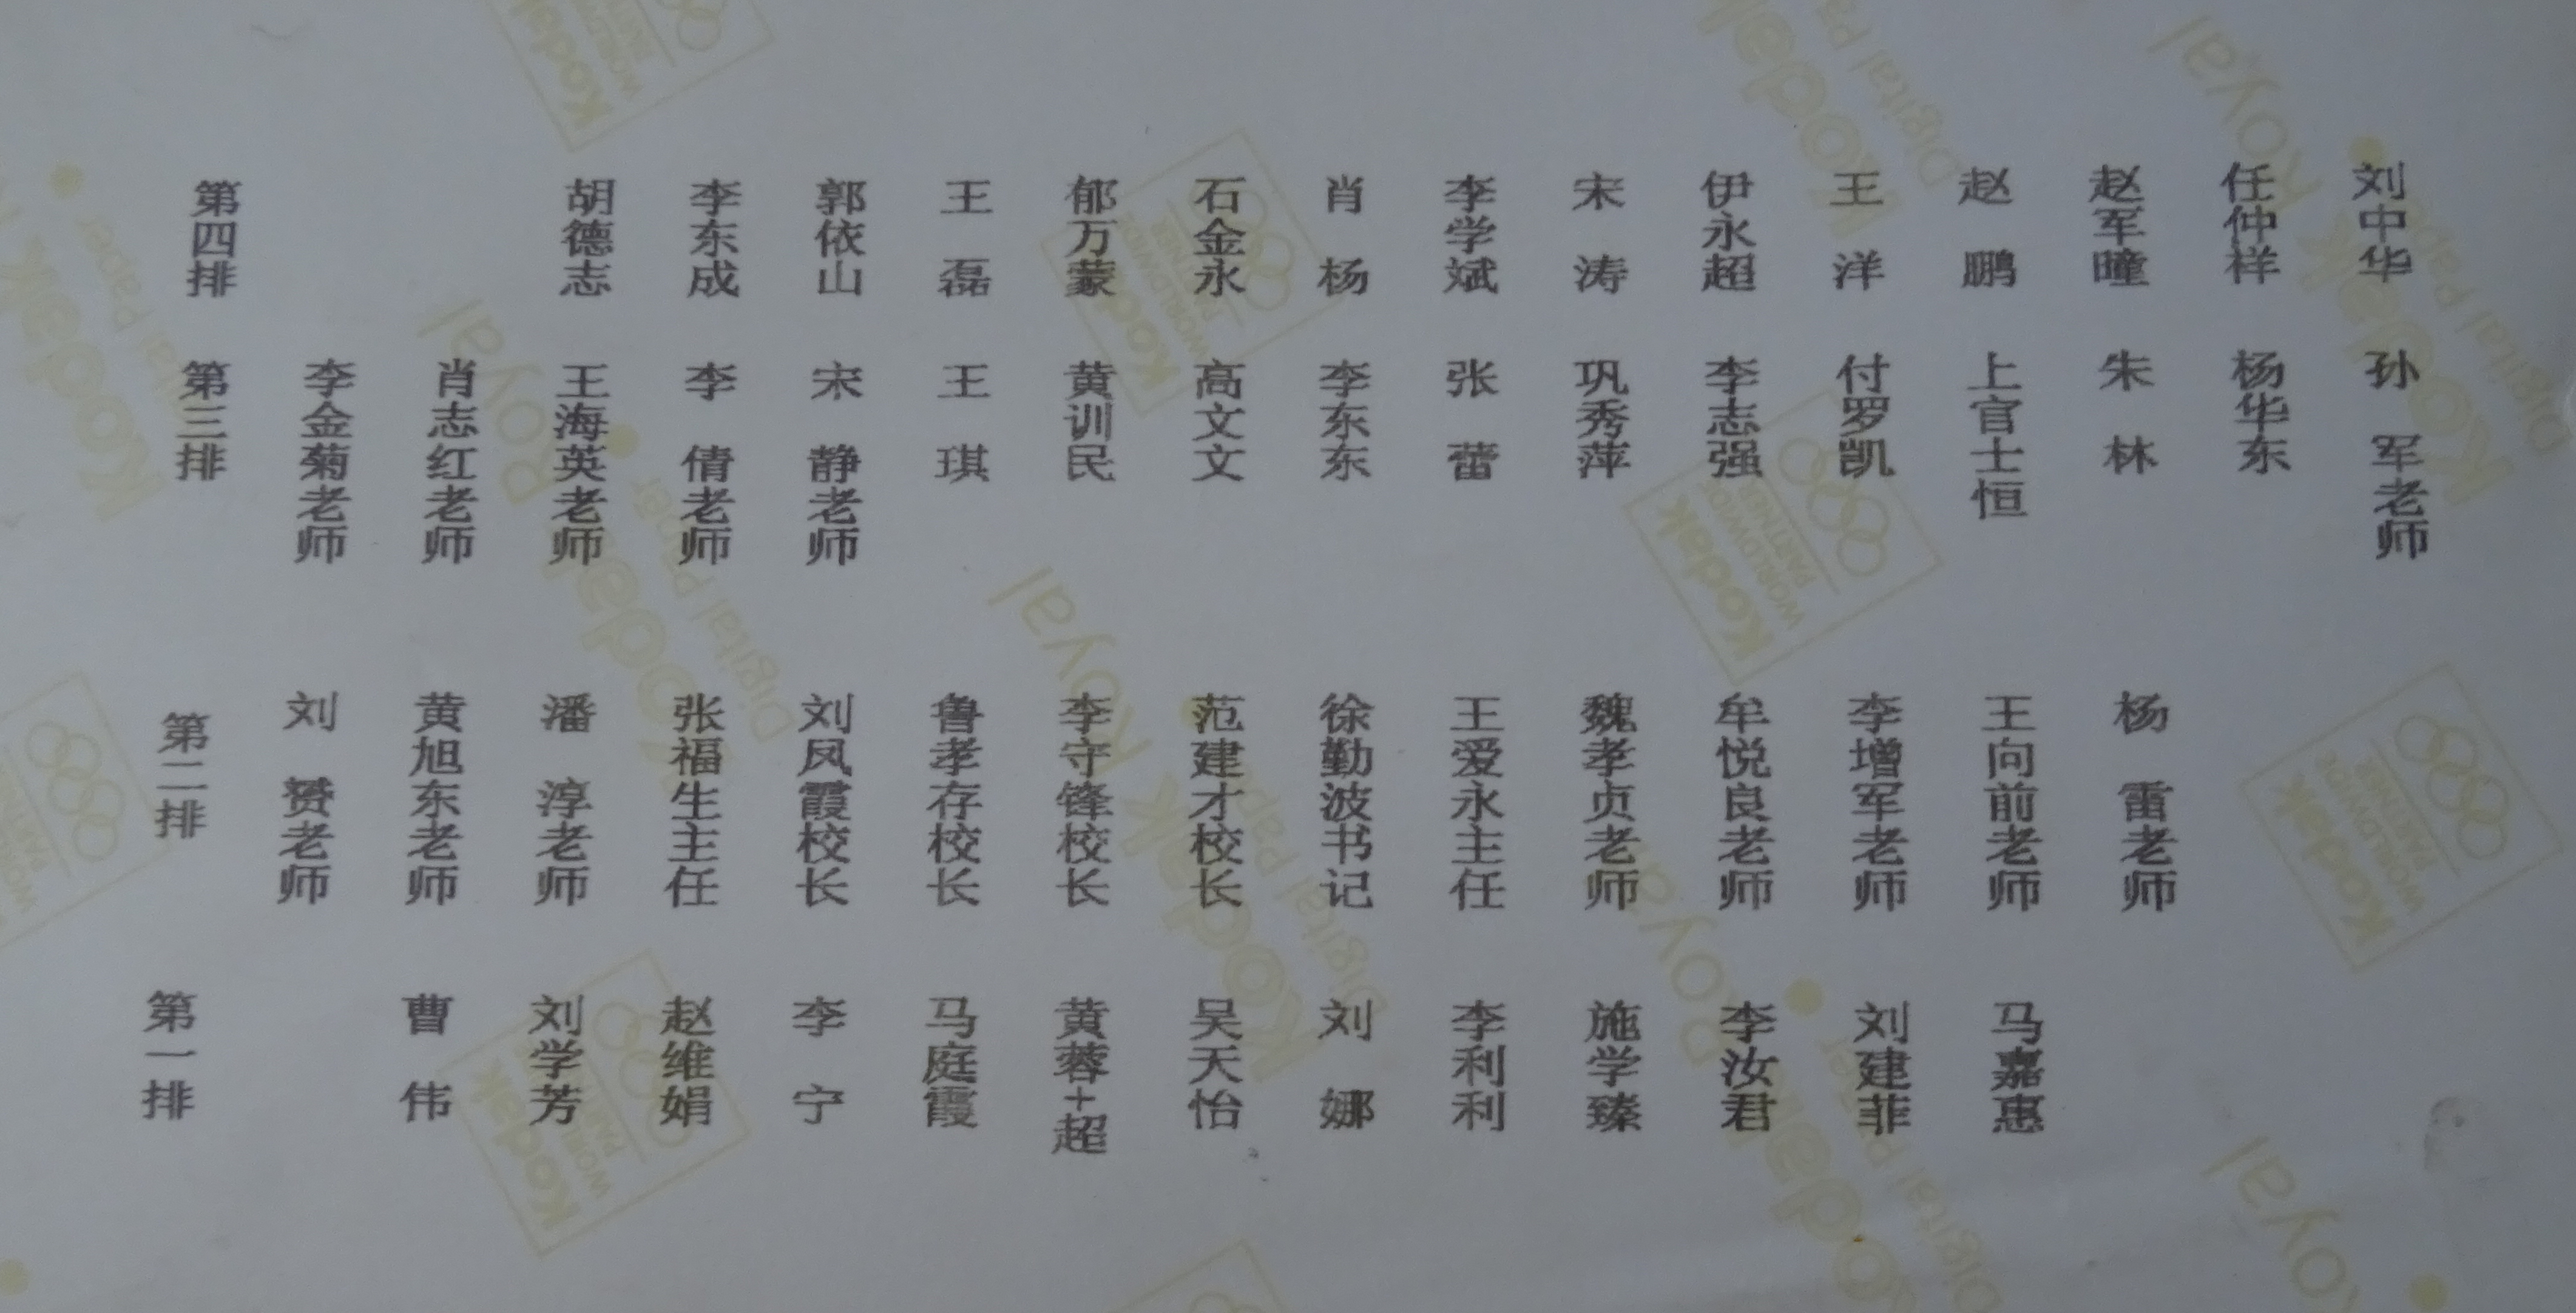 第四排 胡德志 李东成 郭依山 王磊 郁万蒙 石金永 肖杨 李学斌 宋涛 伊永超 王洋 赵鹏 赵军曈 任仲样 刘中华
第三排 李金菊老师 肖志红老师 王海英老师 李倩老师 宋静老师 王琪 黄训民 高文文 李东东 张蕾 巩秀萍 李志强 付罗凯 上官士恒 朱林 杨华东 孙军老师
第二排 刘赟老师 黄旭东老师 潘淳老师 张福生主任 刘凤霞校长 鲁孝存校长 李守锋校长 范建才校长 徐勤波书记 王爱永主任 魏孝贞老师 牟悦良老师 李增军老师 王向前老师 杨雷老师
第一排 曹伟 刘学芳 赵维娟 李宁 马庭霞 黄蓉+超 吴天怡 刘娜 李利利 施学臻 李汝君 刘建菲 马嘉惠
Kodak Royal Digital Paper
Kodak WORLDWIDE PARTNER